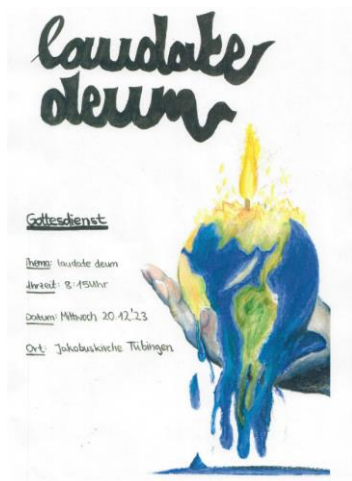 laudate
deum
Gottesdienst
Thema: laudate deum
Uhrzeit: 8:15Uhr
Datum: Mittwoch 20.12.'23
Ort: Jakobuskirche Tübingen